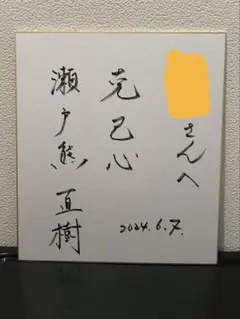 さんへ
克己心
2024.6.7.
瀬戸熊直樹